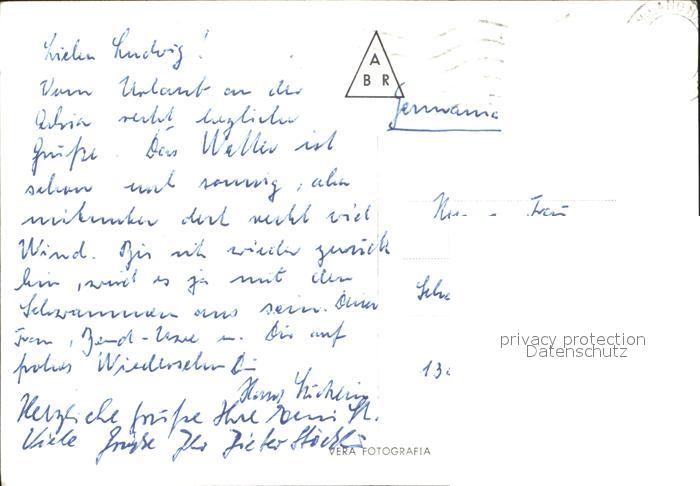 Lieber Ludwig!
Vom Urlaub an der
Adria recht herzliche
Grüße. Das Wetter ist
schön und sonnig, aber
mitunter doch recht viel
Wind. Bis ich wieder zurück
bin, wird es ja mit den
Schwammen aus sein. Deiner
Frau, und Dir auf
frohes Wiedersehen Dein
Hans
Herzliche Grüße Ihre
Viele Grüße Ihr Dieter
A
B R
Germania
Frau
privacy protection
Datenschutz
VERA FOTOGRAFIA